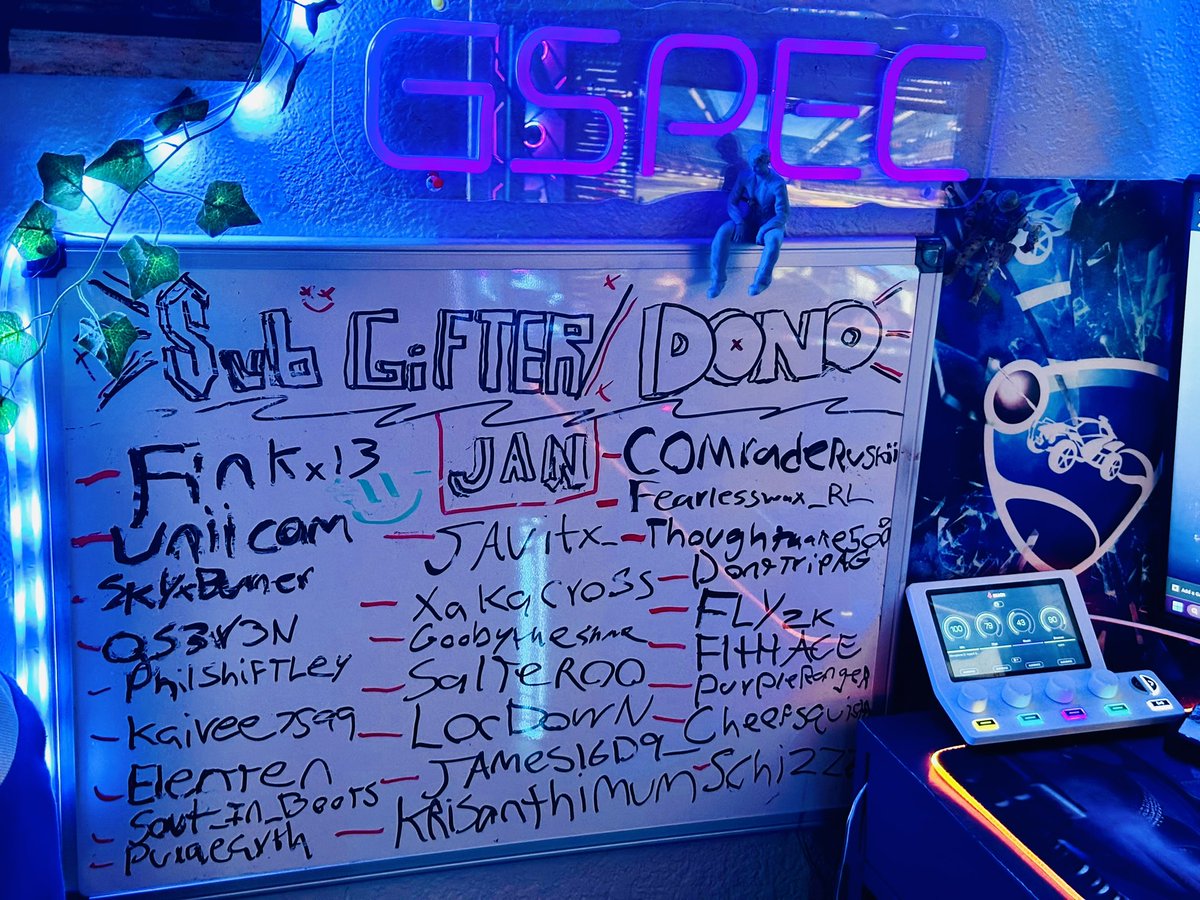 GSPEC
Sub GiFTER/DONO
JAN
Finkx13
Uniicom
SkyxBurner
OS3V3N
PhilshiFTLey
Kaivee7599
Elenten
Sout_In_Boots
JAvitx_
XakaCross
Goobytheshne
SalTEROO
LocDowN
JAMES16D9_
KRisanthiMum
COMradeRuskii
Fearlesswux_RL
DontTripAG
FLY2K
F1tHACE
PurpleRangeR
100 79 43 90